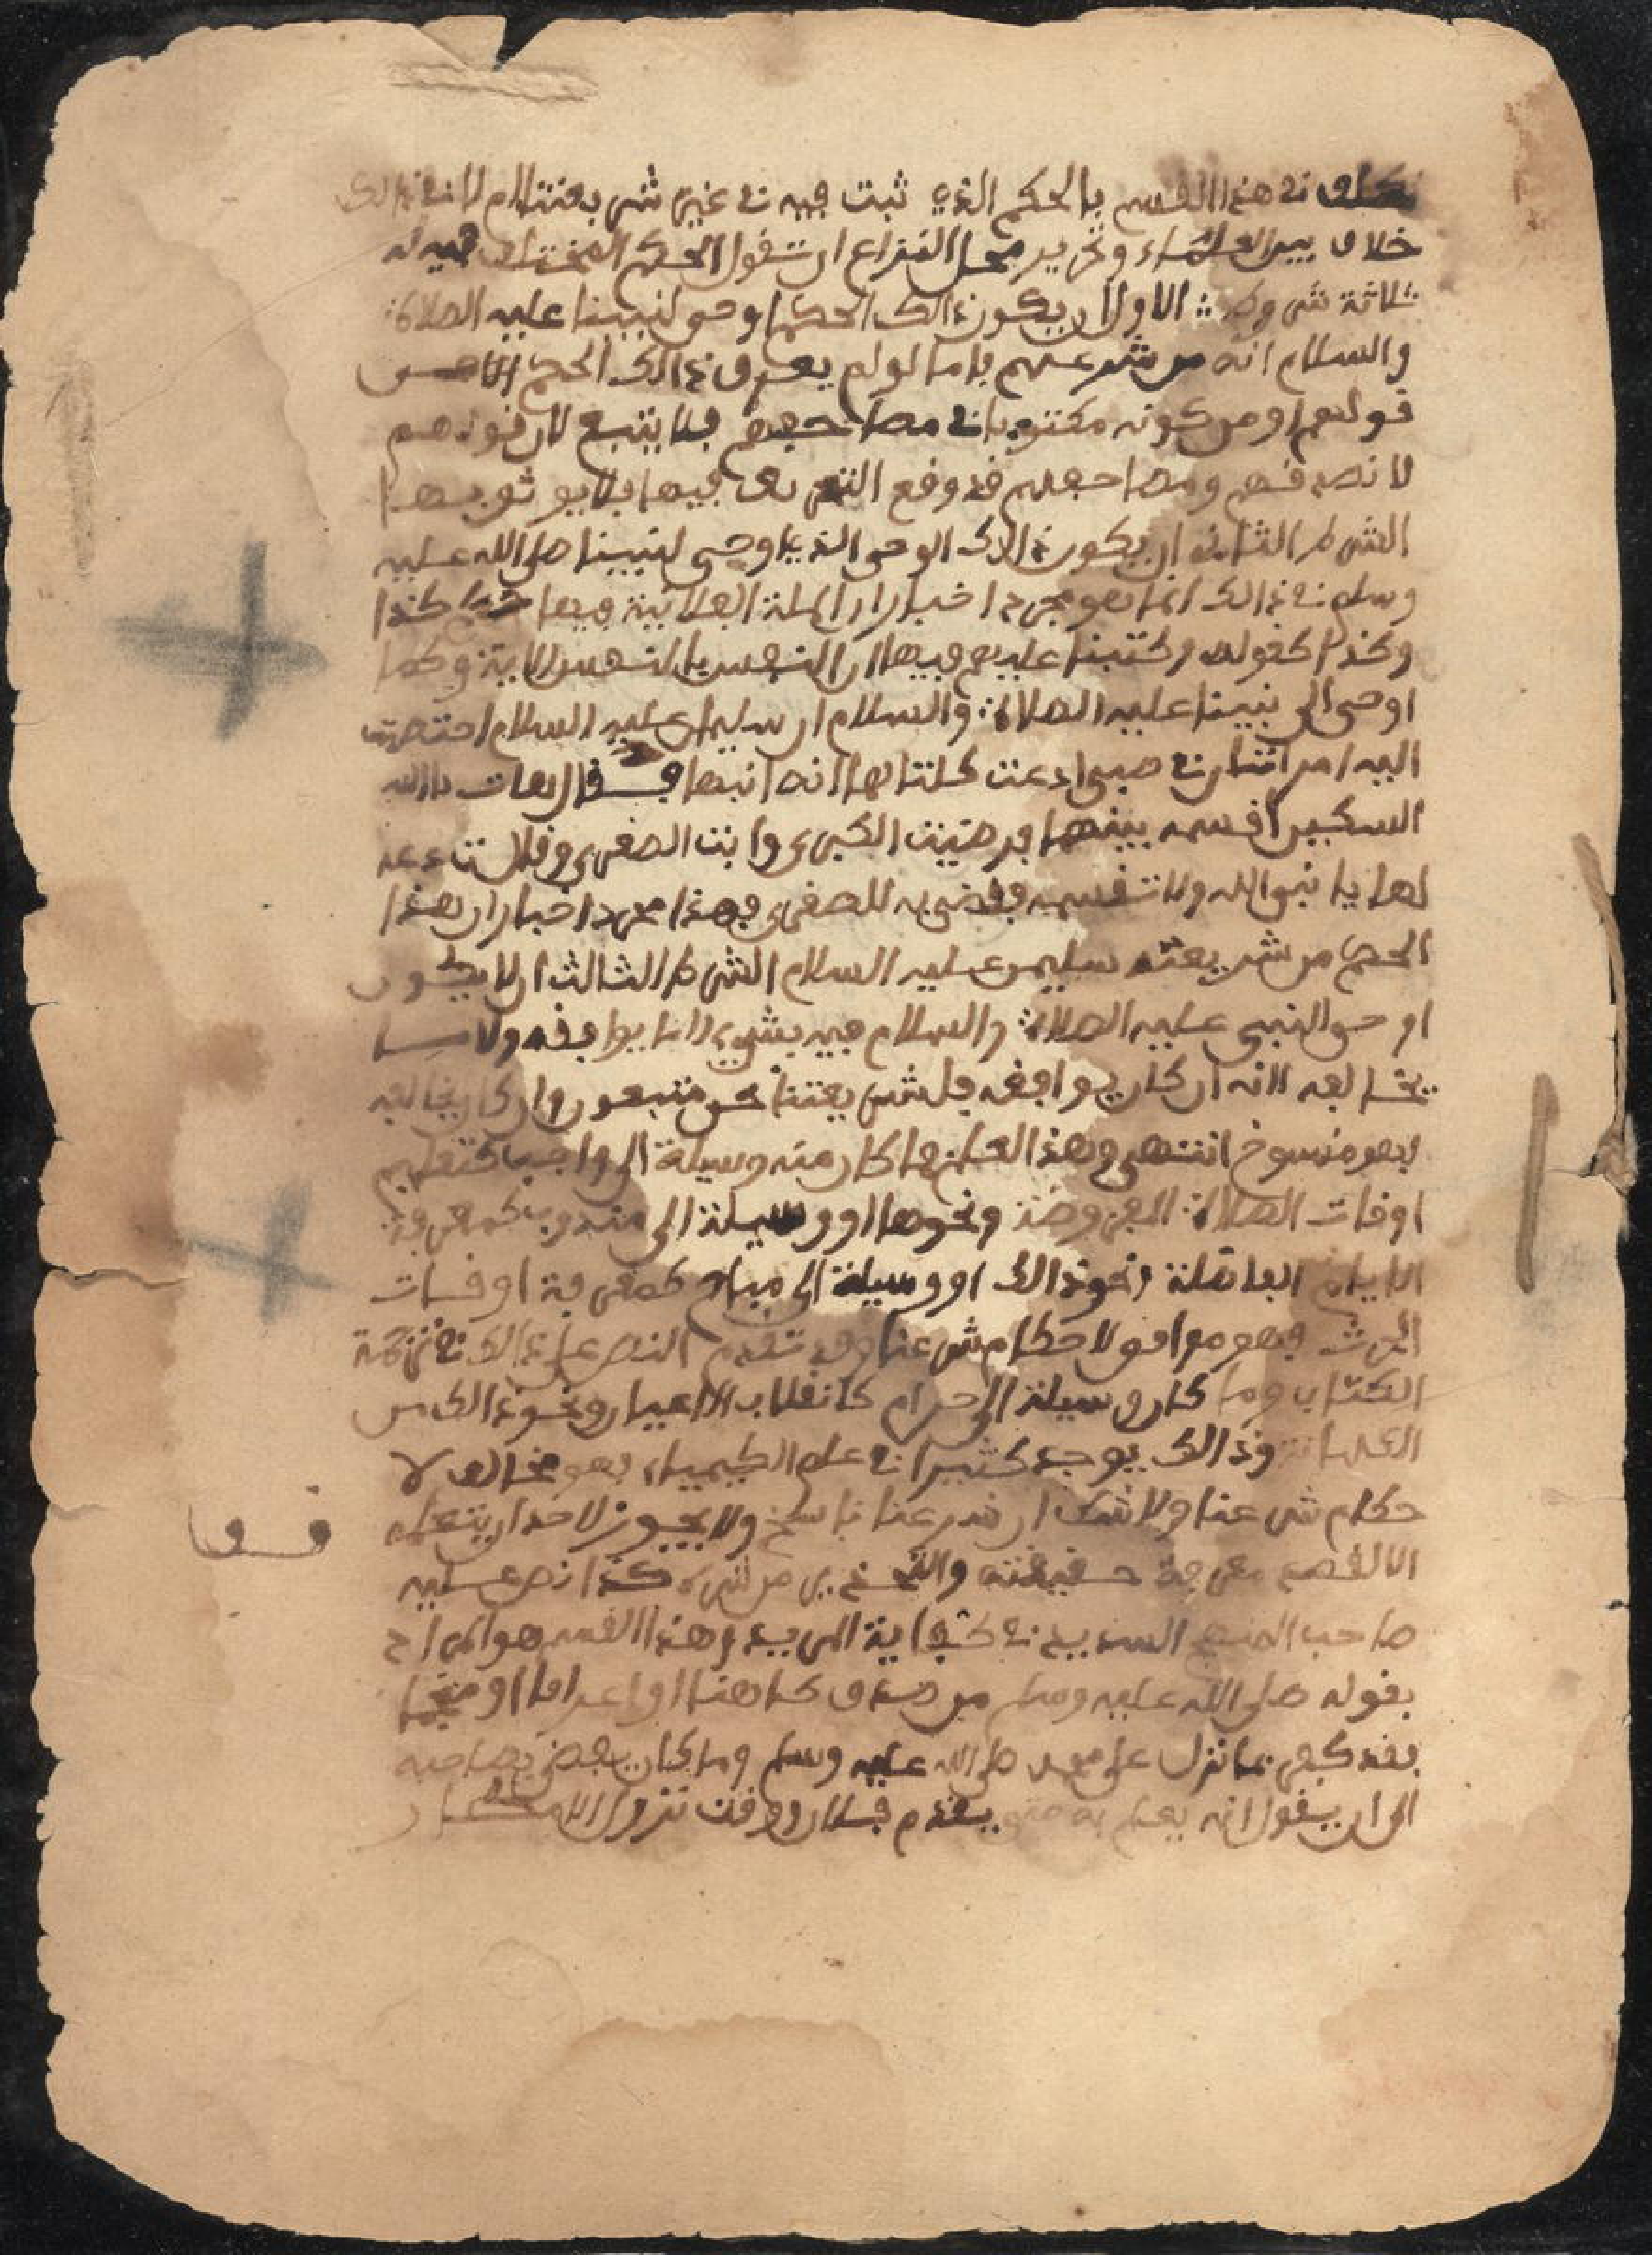 نكلف في هذا القسم بالحكم الذي ثبت فيه في غير شريعتنا ام لا في ذالك
خلاف بين العلماء وتحرير محل النزاع ان تقول الحكم المختلف فيه له
ثلاثة شروط الاول ان يكون ذالك الحكم اوحي لنبينا عليه الصلاة
والسلام انه من شرعهم فاما لو لم يعرف ذالك الحكم الا من
قولهم او من كونه مكتوبا في مصاحفهم فلا يتبع لان قولهم
لا نصدقهم ومصاحفهم قد وقع التحريف فيها فلا يوثق بها
الشرط الثاني ان يكون ذالك الوحي الذي اوحي لنبينا صلى الله عليه
وسلم في ذالك انما هو مجرد اخبار ان الملة الفلانية فيها كذا
وكذا كقوله وكتبنا عليهم فيها ان النفس بالنفس الاية وكما
اوحي الى نبينا عليه الصلاة والسلام ان سليمان عليه السلام اختصمت
اليه امراتان في صبي ادعت كلتاهما انه ابنها فقال هات بالله
السكين اقسمه بينهما فرضيت الكبرى وابت الصغرى وقالت دعه
لها يا نبي الله ولا تقسمه فقضى به للصغرى فهذا مجرد اخبار ان هذا
الحكم من شريعة سليمن عليه السلام الشرط الثالث ان لا يكون
اوحي النبي عليه الصلاة والسلام فيه بشيء لا ما يوافقه ولا ما
يخالفه لانه ان كان يوافقه فلشريعتنا نحن متبعون وان كان يخالفه
فهو منسوخ انتهى وهذا العلم ما كان منه وسيلة الى واجب كتعليم
اوقات الصلاة المفروضة ونحوها او وسيلة الى مندوب كمعرفة
الايام الفاضلة ونحو ذالك او وسيلة الى مباح كمعرفة اوقات
الحرث فهو موافق لاحكام شرعنا وقد تقدم النص على ذالك في ترجمة
الكتاب وما كان وسيلة الى حرام كانقلاب الاعيان ونحو ذالك من
وذالك يوجد كثيرا في علم الكيمياء فهو مخالف لا
حكام شرعنا ولا شك ان شرعنا ناسخ ولا يجوز لاحد ان يتعلمه
الا لقصد معرفة حقيقته والتحذير من شره كذا نص عليه
صاحب المنهج السديد في كفاية المريد وهذا القسم هو المراد
بقوله صلى الله عليه وسلم من صدق كاهنا او عرافا او منجما
فقد كفر بما نزل على محمد صلى الله عليه وسلم وما كان يفضي بصاحبه
الى ان يقول انه يعلم به متى يقدم فلان ووقت نزول الامطار
قف